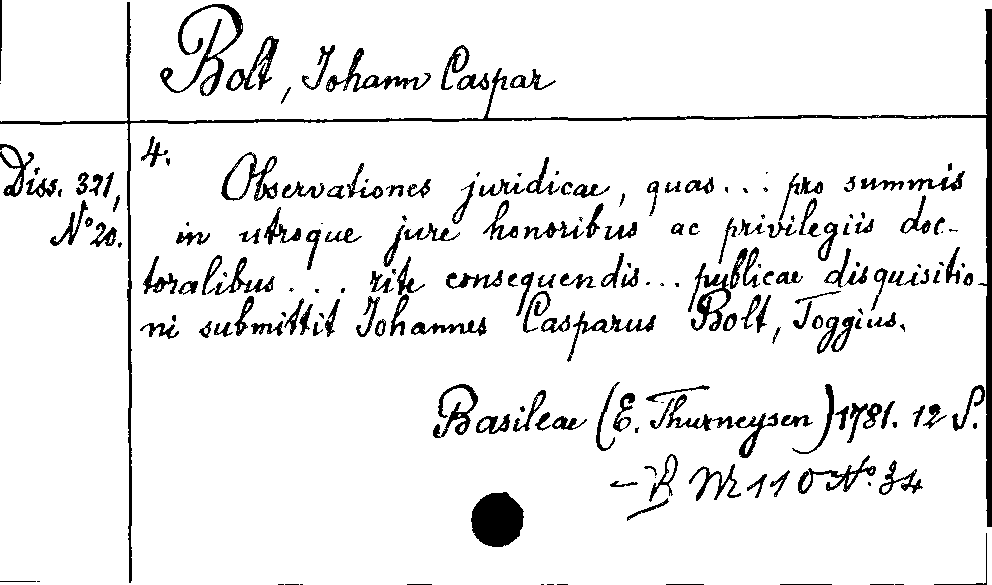 Bolt, Johann Caspar
4.
Diss. 321,
No 20.
Observationes juridicae, quas... pro summis
in utroque jure honoribus ac privilegiis doc-
toralibus... rite consequendis... publicae disquisitio-
ni submittit Johannes Casparus Bolt, Toggius.
Basileae (E. Thurneysen) 1781. 12 S.
110 No. 34